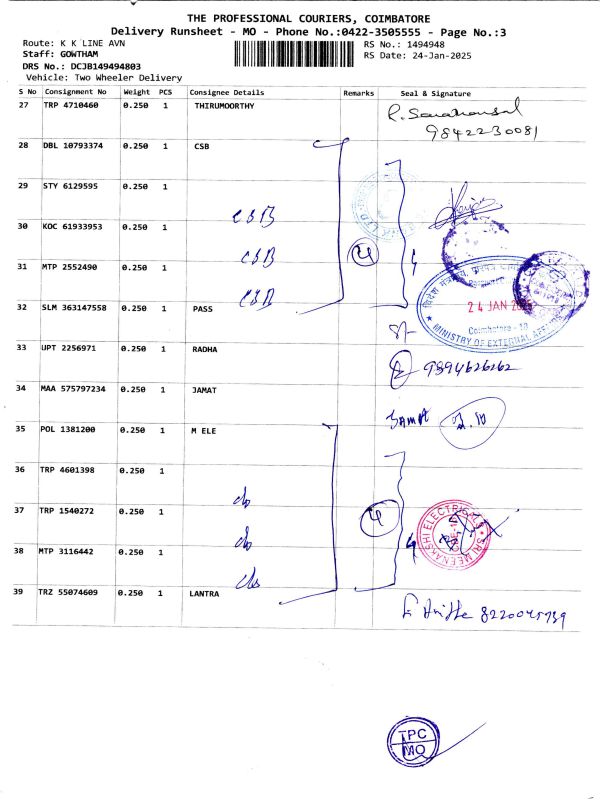 THE PROFESSIONAL COURIERS, COIMBATORE
Delivery Runsheet - MO - Phone No.:0422-3505555 - Page No.:3
Route: K K LINE AVN
Staff: GOWTHAM
DRS No.: DCJB149494803
Vehicle: Two Wheeler Delivery
RS No.: 1494948
RS Date: 24-Jan-2025
S No Consignment No Weight PCS Consignee Details Remarks Seal & Signature
27 TRP 4710460 0.250 1 THIRUMOORTHY
9842230081
28 DBL 10793374 0.250 1 CSB
29 STY 6129595 0.250 1
CSB
30 KOC 61933953 0.250 1
CSB
4
31 MTP 2552490 0.250 1
CSB
32 SLM 363147558 0.250 1 PASS
24 JAN
Coimbatore - 18
MINISTRY OF EXTERNAL AFFAIRS
33 UPT 2256971 0.250 1 RADHA
9894626262
34 MAA 575797234 0.250 1 JAMAT
JAMAT
35 POL 1381200 0.250 1 M ELE
36 TRP 4601398 0.250 1
do
37 TRP 1540272 0.250 1
4
do
SRI MEENAKSHI ELECTRICALS
38 MTP 3116442 0.250 1
do
39 TRZ 55074609 0.250 1 LANTRA
TPC
MO